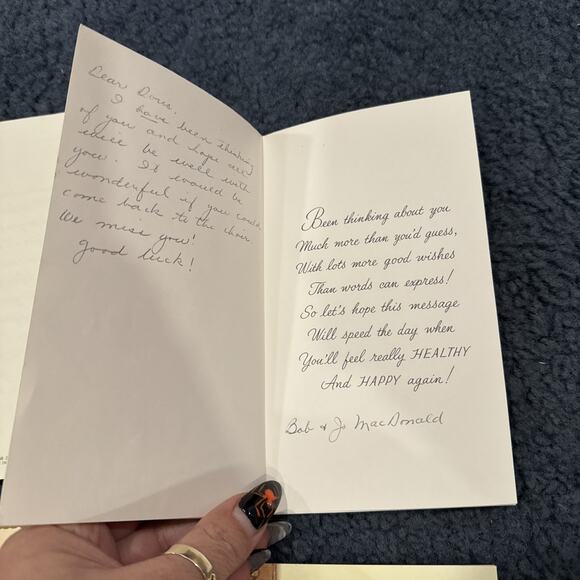 Dear Doris,
I have been thinking
of you and hope all
will be well with
you. It would be
wonderful if you could
come back to the choir
We miss you!
Good luck!
Been thinking about you
Much more than you'd guess,
With lots more good wishes
Than words can express!
So let's hope this message
Will speed the day when
You'll feel really HEALTHY
And HAPPY again!
Bob & Jo MacDonald